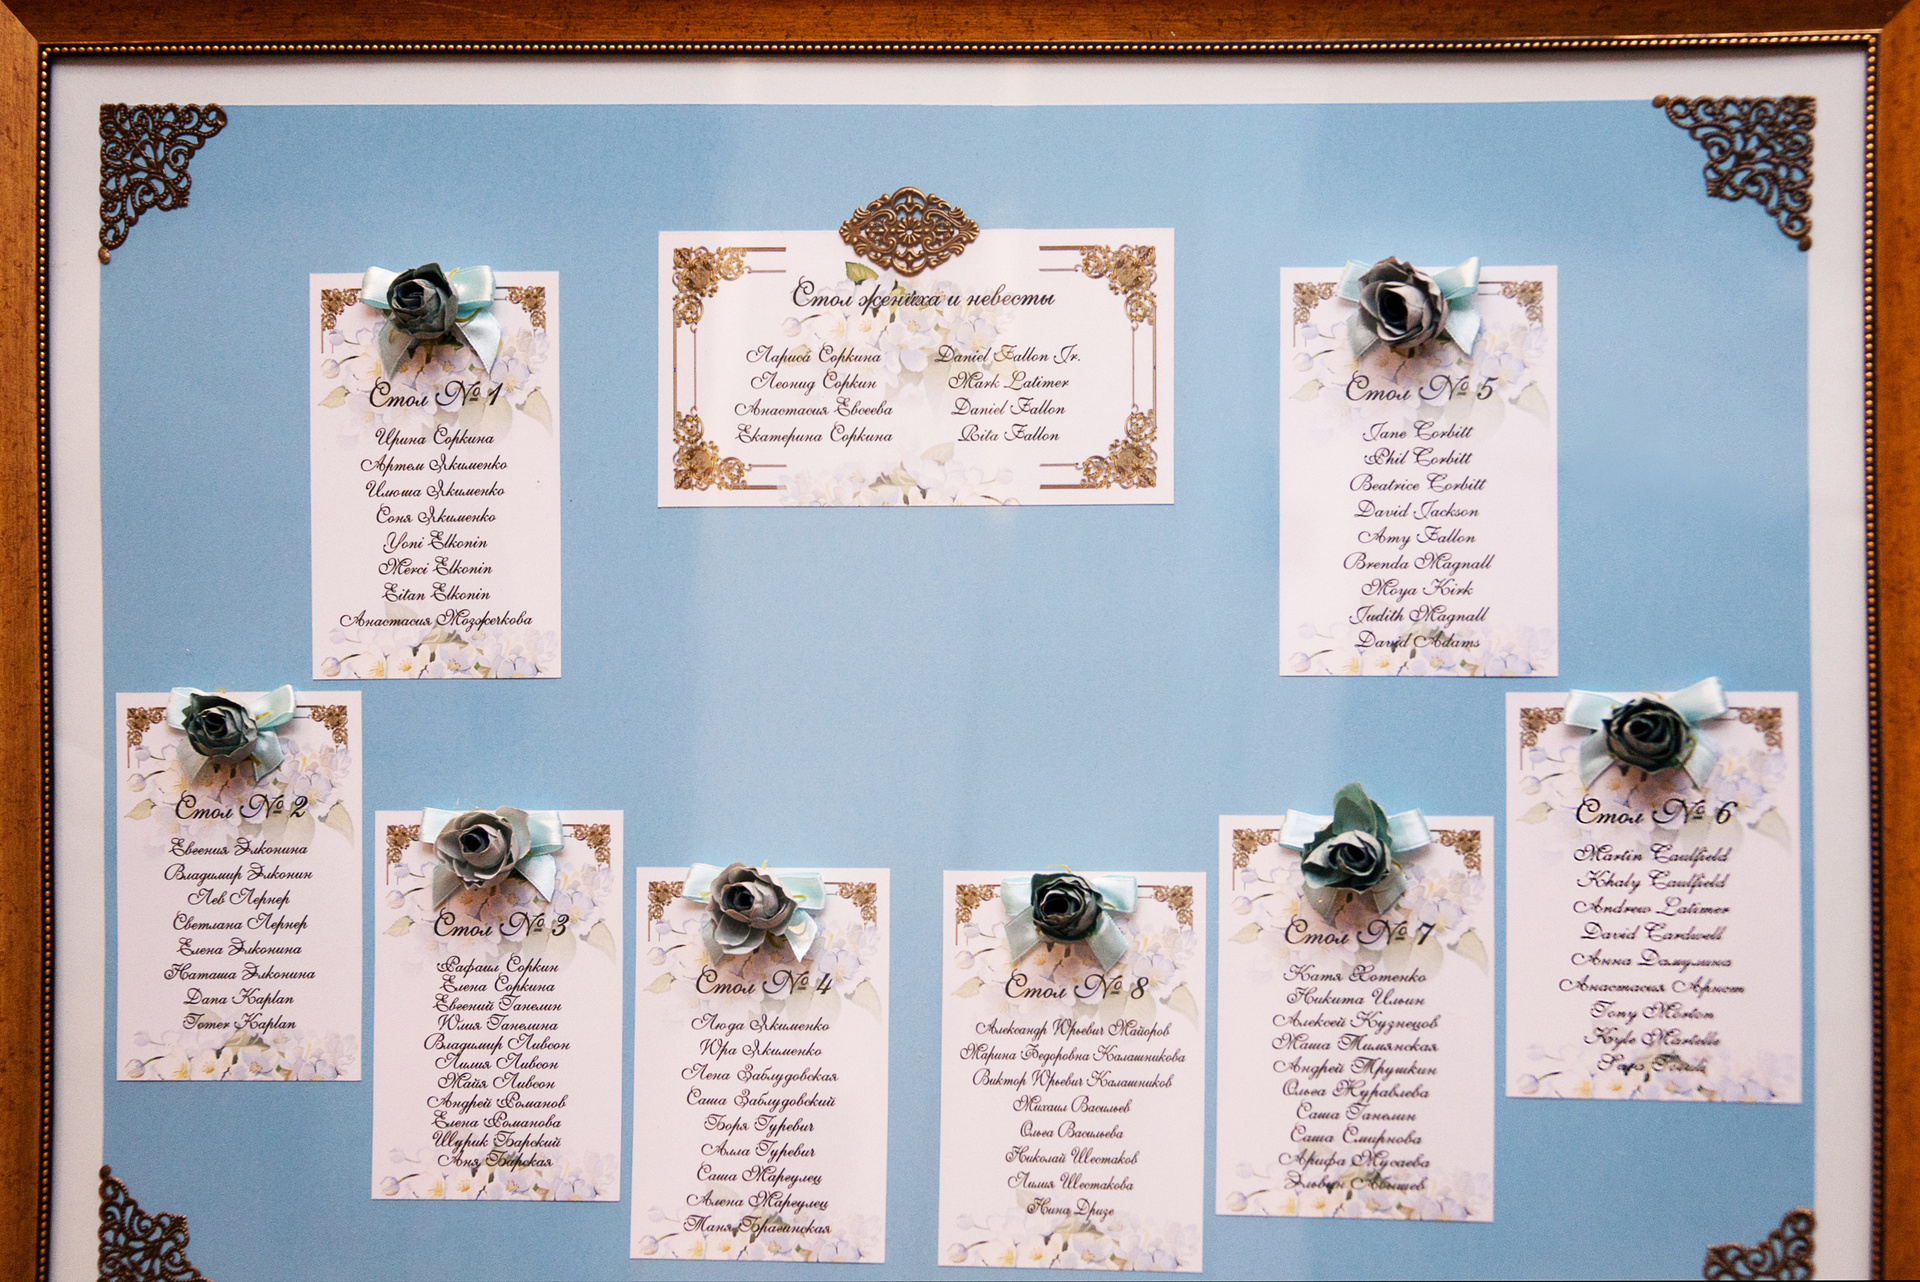 Стол жениха и невесты
Лариса Соркина
Леонид Соркин
Анастасия Евсеева
Екатерина Соркина
Daniel Fallon Jr.
Mark Latimer
Daniel Fallon
Rita Fallon
Стол № 1
Ирина Соркина
Артем Якименко
Илюша Якименко
Соня Якименко
Yoni Elkonin
Merci Elkonin
Eitan Elkonin
Анастасия Мозжечкова
Стол № 5
Jane Corbitt
Phil Corbitt
Beatrice Corbitt
David Jackson
Amy Fallon
Brenda Magnall
Moya Kirk
Judith Magnall
David Adams
Стол № 2
Евгения Элконина
Владимир Элконин
Лев Лернер
Светлана Лернер
Елена Элконина
Наташа Элконина
Dana Kaplan
Tomer Kaplan
Стол № 3
Рафаил Соркин
Елена Соркина
Евгений Ганелин
Юлия Ганелина
Владимир Ливсон
Лилия Ливсон
Майя Ливсон
Андрей Романов
Елена Романова
Шурик Барский
Аня Барская
Стол № 4
Люда Якименко
Юра Якименко
Лена Заблудовская
Саша Заблудовский
Боря Гуревич
Алла Гуревич
Саша Маргулец
Алена Маргулец
Таня Брагинская
Стол № 8
Александр Юрьевич Майоров
Марина Федоровна Калашникова
Виктор Юрьевич Калашников
Михаил Васильев
Ольга Васильева
Николай Шестаков
Лилия Шестакова
Нина Дризе
Стол № 7
Катя Хотенко
Никита Ильин
Алексей Кузнецов
Маша Тимянская
Андрей Трушкин
Ольга Журавлева
Саша Ганелин
Саша Смирнова
Арифа Мусаева
Эльвин Абышев
Стол № 6
Martin Caulfield
Khaly Caulfield
Andrew Latimer
David Cardwell
Анна Дамулина
Анастасия Арнст
Tony Morton
Kyle Martelli
Sara